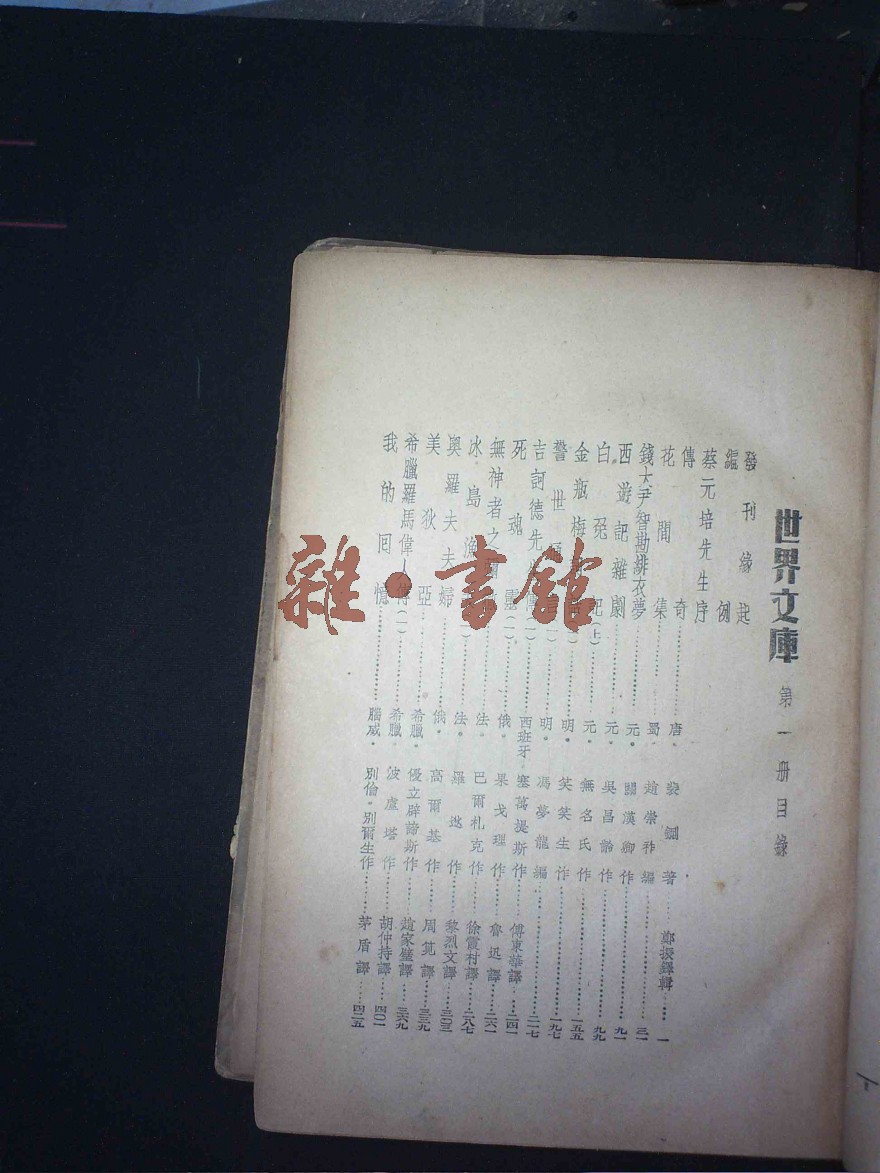 世界文庫 第一册目錄
發刊緣起
編例
蔡元培先生序
傳奇……唐·裴鉶著……鄭振鐸輯……一
花間集……蜀·趙崇祚編……三一
錢大尹智勘緋衣夢……元·關漢卿作……九一
西遊記雜劇……元·吳昌齡作……九九
白兔記(上)……元·無名氏作……一五五
金瓶梅……明·笑笑生作……一九七
警世……明·馮夢龍編……二一七
吉訶德先生傳(一)……西班牙·塞萬提斯作……傅東華譯……二四一
死魂靈(一)……俄·果戈理作……魯迅譯……二六一
無神者之……法·巴爾札克作……徐霞村譯……二八七
冰島漁……法·羅逖作……黎烈文譯……三〇三
奧羅夫夫婦……俄·高爾基作……周筧譯……三三九
美狄亞……希臘·優立辟諦斯作……趙家璧譯……三六九
希臘羅馬偉人傳(一)……希臘·波盧塔作……胡仲持譯……四〇一
我的囘憶……腦威·別倫·別爾生作……茅盾譯……四二五
雜·書館